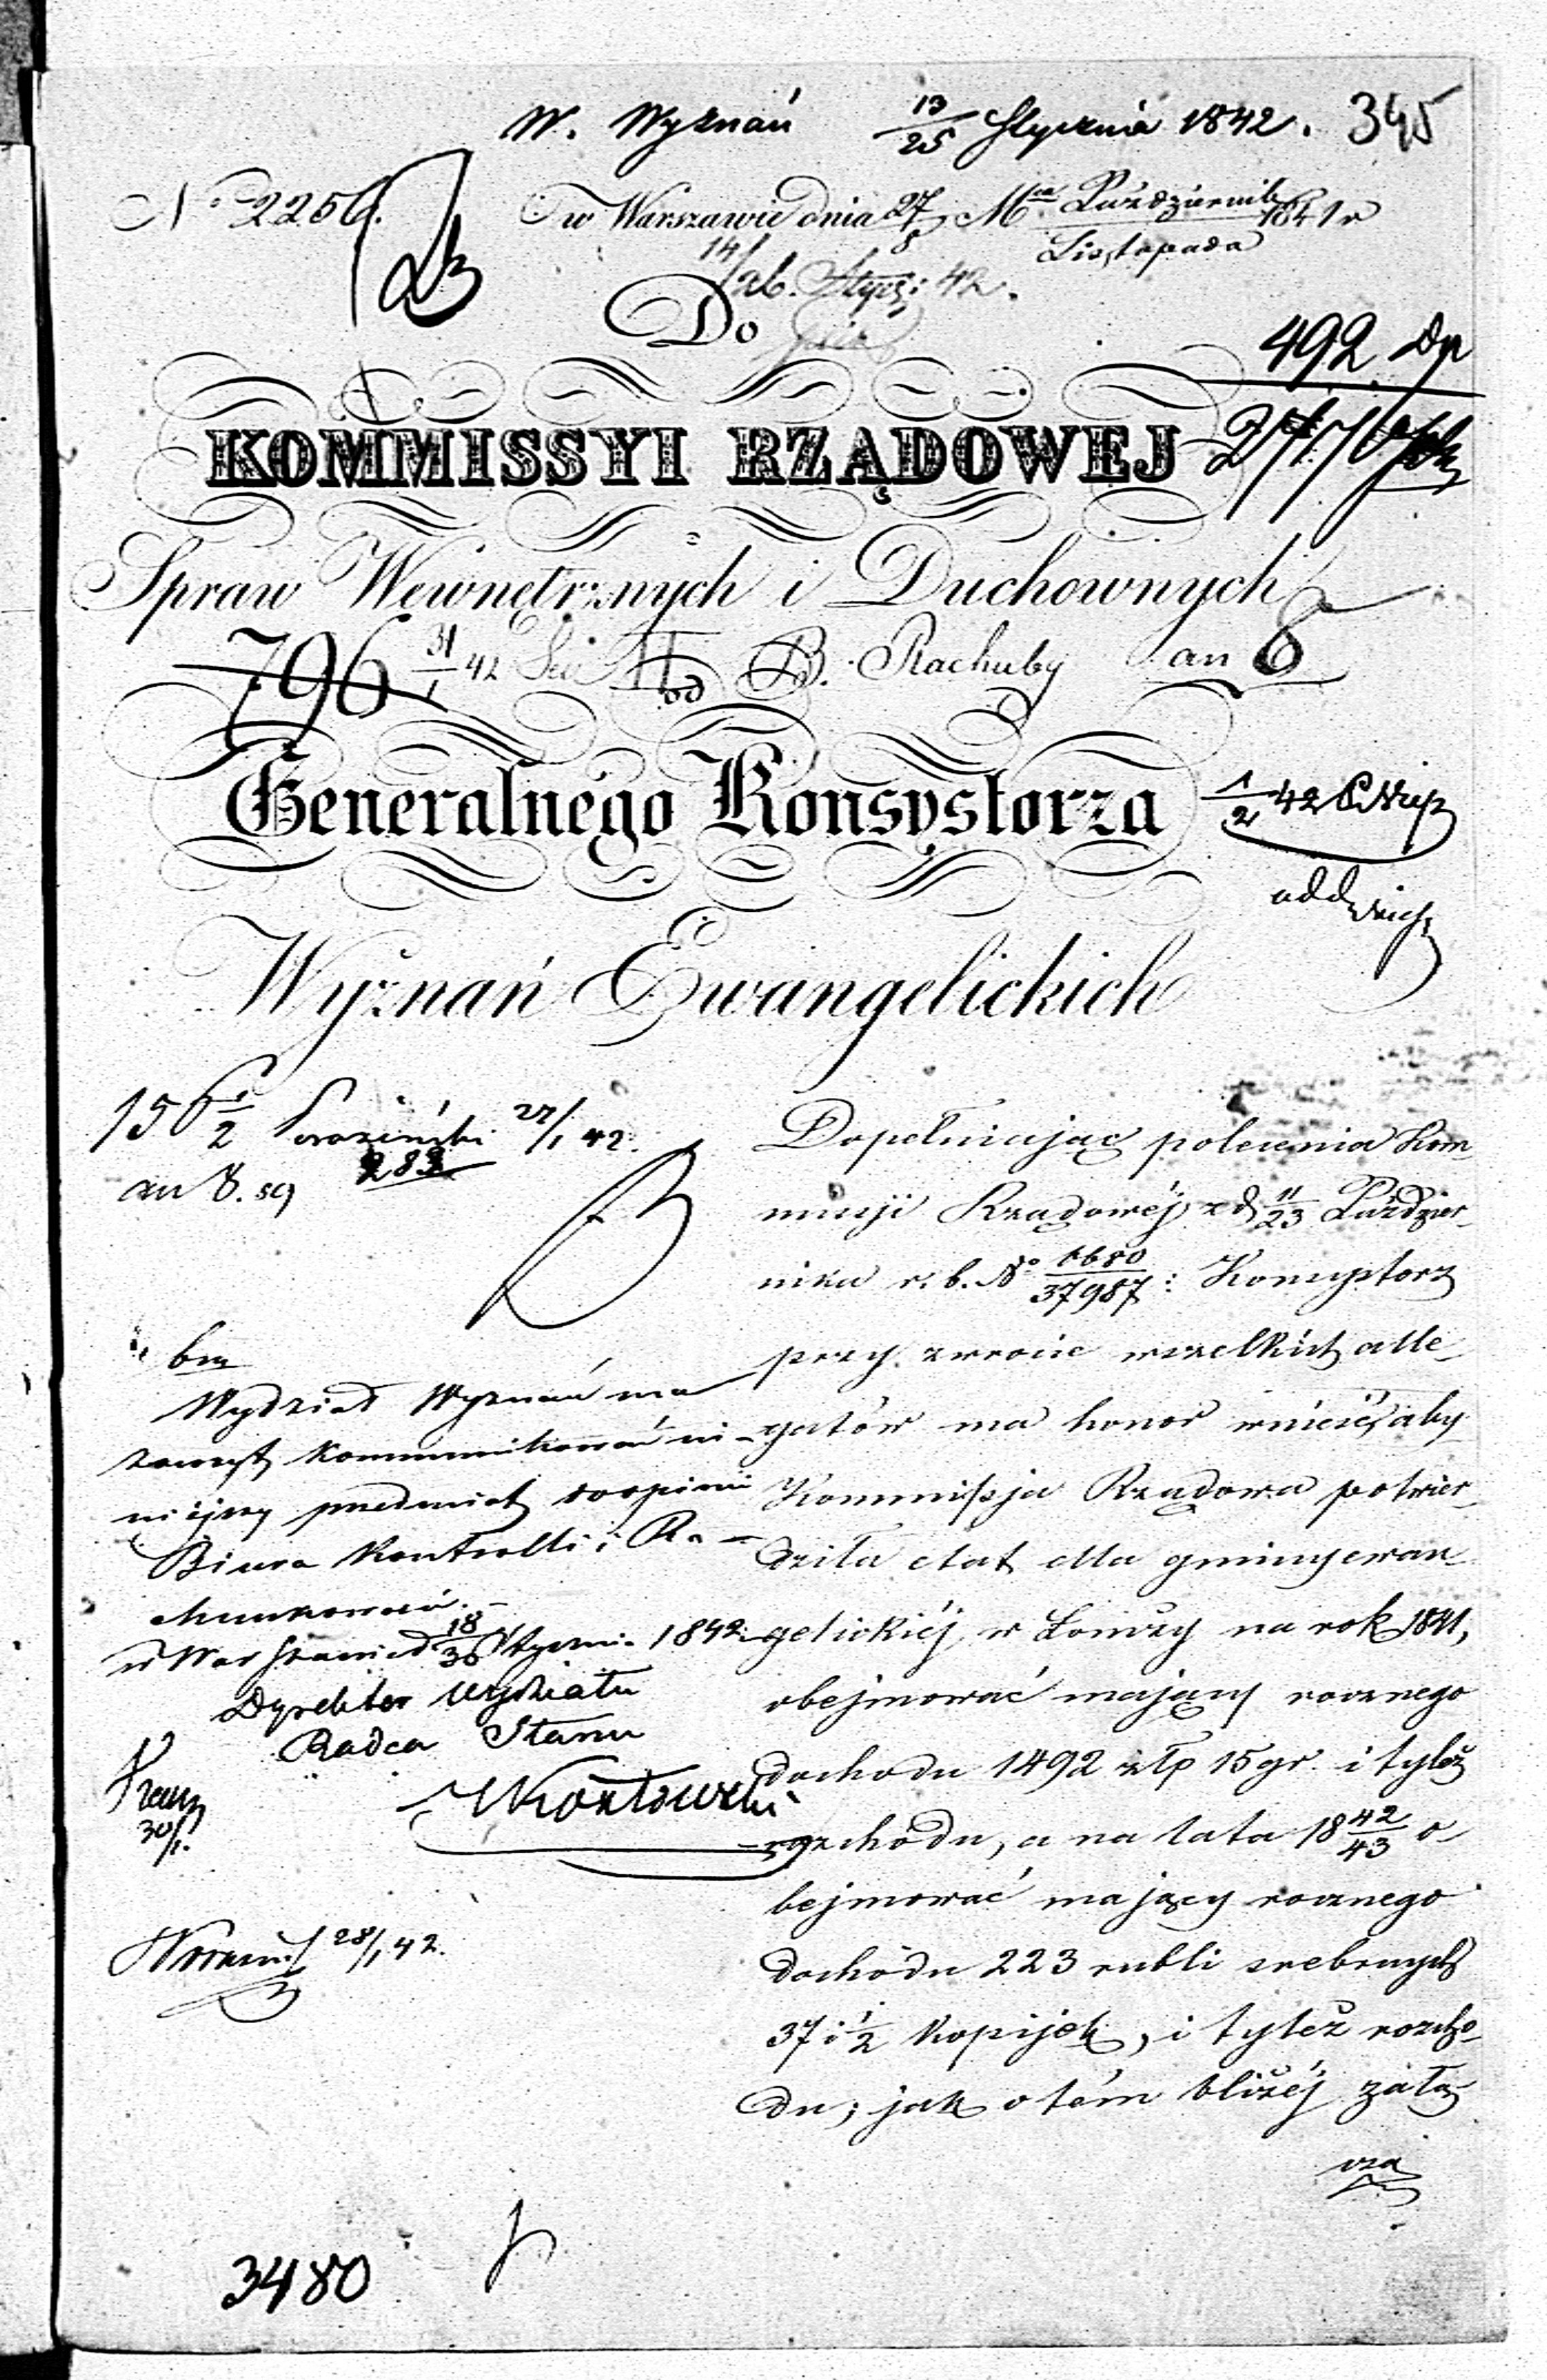 W. Wyznań 13/25 Stycznia 1842. 345
No 2256. w Warszawie dnia 27/8 Mca Października/Listopada 1841 r
14/26. Stycz: 42.
Do
492 Dp
KOMMISSYI RZĄDOWEJ
Spraw Wewnętrznych i Duchownych
796 31/1 42 B. Rachuby an 8
od
Generalnego Konsystorza
1/2 42
Wyznań Ewangelickich
156 1/2 27/1 42.
an 8. sq 283
Dopełniając polecenia Kom-
missji Rządowéj z d 11/23 Paździer-
nika r. b. No 6680/37987: Konsystorz
przy zwrocie wszelkich alle-
gatów ma honor wnieść, aby
Kommissja Rządowa potwier-
dziła etat dla gminy ewan-
gelickiéj w Łomży na rok 1841,
obejmować mający rocznego
dochodu 1492 złp 15 gr. i tyleż
rozchodu, a na lata 18 42/43 o-
bejmować mający rocznego
dochodu 223 rubli srebrnych
37 i 1/2 kopijek, i tyleż rozcho-
du; jak o tém bliżéj załą-
cza
bm
Wydział Wyznań ma
zaszczyt kommunikować ni-
niejszy przedmiot do opinii
Biura Kontrolli i Ra-
chunkowości.
w Warszawie d 18/30 Stycznia 1842
Dyrektor Wydziału
Radca Stanu
30/1.
28/1 42.
3480